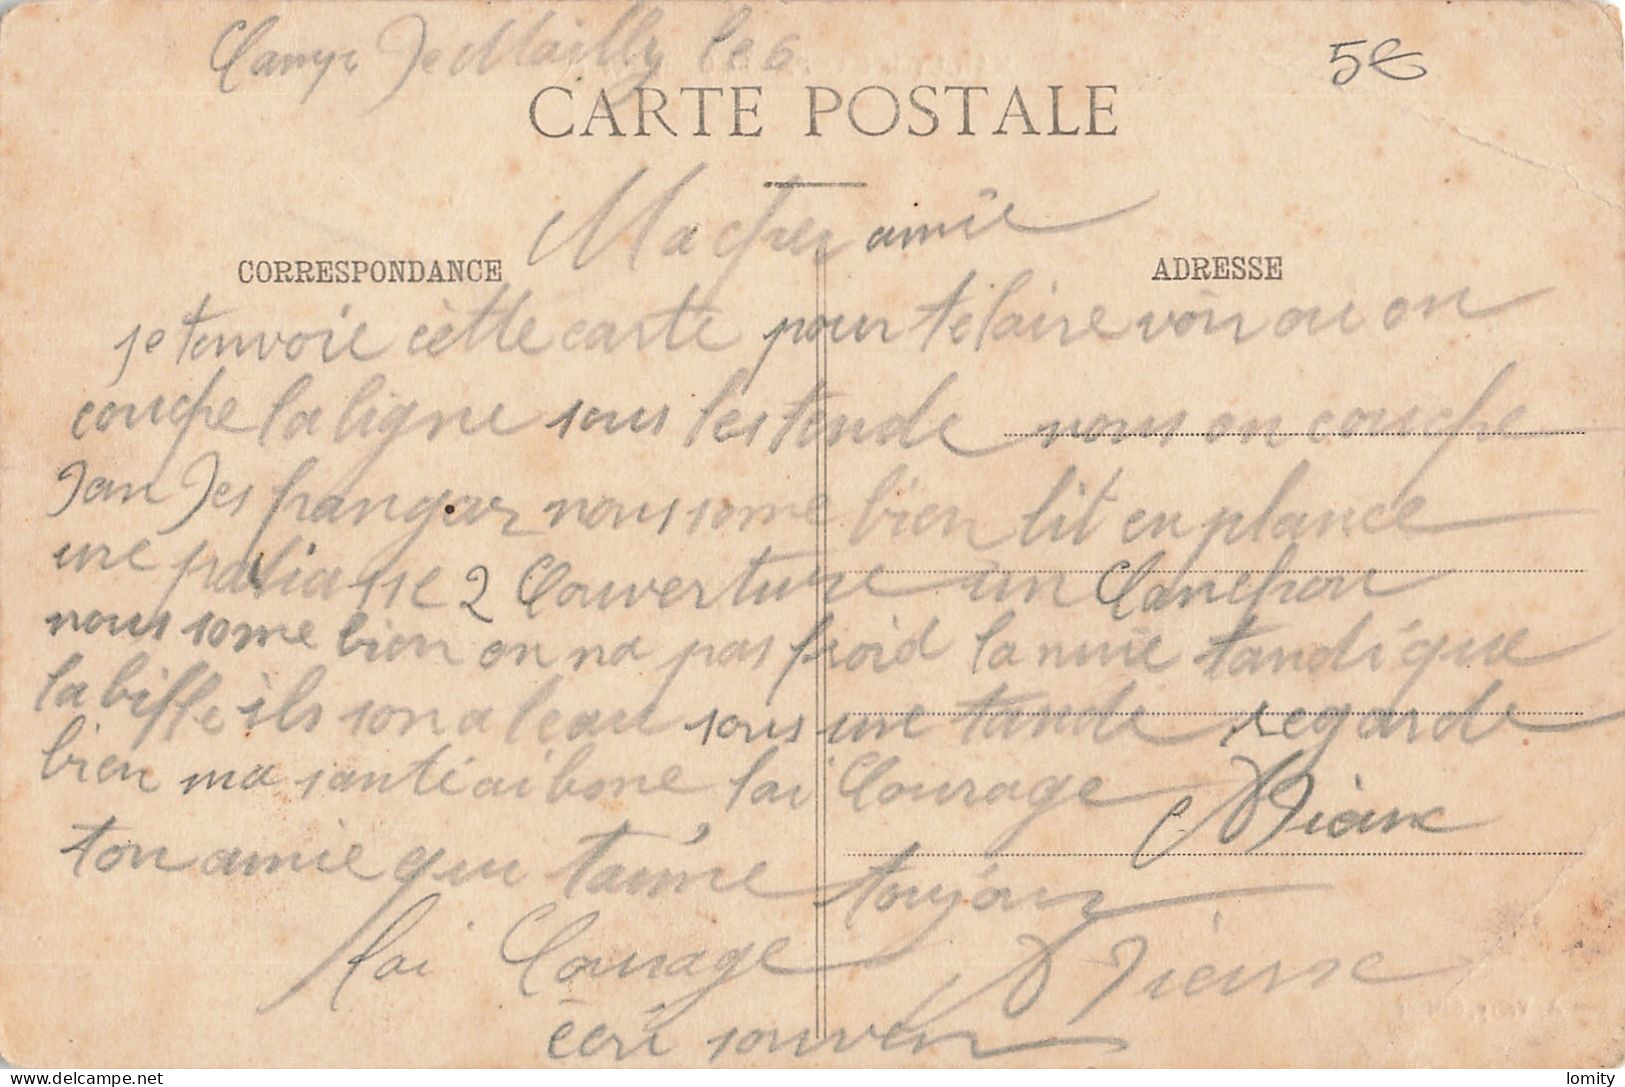 Camp de Mailly le 6
5€
CARTE POSTALE
Ma cher amie
CORRESPONDANCE
ADRESSE
je tenvoie cette carte pour te laire voir ou on
couche la ligne sous les tende nous on couche
dan des hangar nous some bien lit en plance
une paliasse 2 Couverture un Canchon
nous some bien on na pas froid la nuie tandi que
la biffe ils son a leau sous une tande regarde
bien ma santi ai bone lai Courage Pierre
ton amie que taime toujour
lai Courage Pierre
ecri souven
delcampe.net
lomity